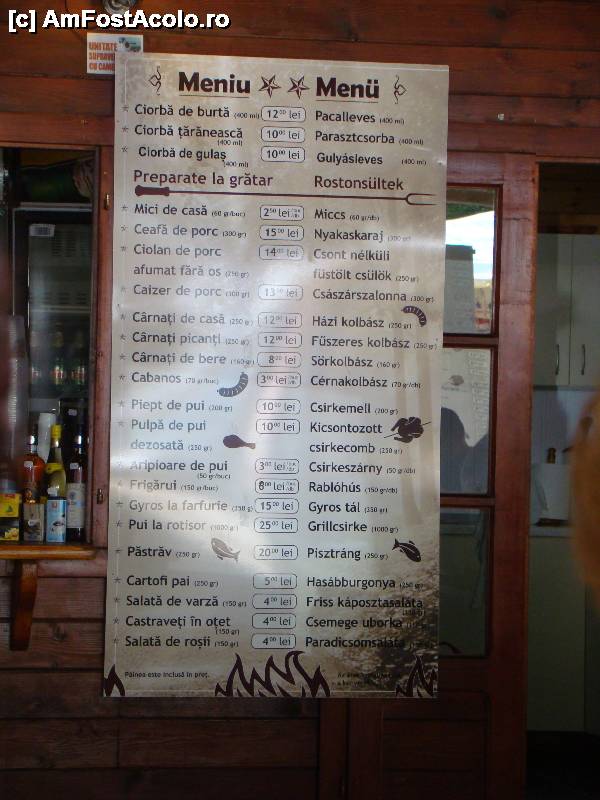 [c] AmFostAcolo.ro
UNITATE
SUPRAVEG
CU CAME
Meniu Menü
Ciorbă de burtă (400 ml) 12⁰⁰ lei Pacalleves (400 ml)
Ciorbă țărănească (400 ml) 10⁰⁰ lei Parasztcsorba (400 ml)
Ciorbă de gulaș (400 ml) 10⁰⁰ lei Gulyásleves (400 ml)
Preparate la grătar Rostonsültek
Mici de casă (60 gr/buc) 2⁵⁰ lei Miccs (60 gr/db)
Ceafă de porc (300 gr) 15⁰⁰ lei Nyakaskaraj (300 gr)
Ciolan de porc 14⁰⁰ lei Csont nélküli
afumat fără os (250 gr) füstölt csülök (250 gr)
Caizer de porc (300 gr) 13⁵⁰ lei Császárszalonna (300 gr)
Cârnați de casă (250 gr) 12⁰⁰ lei Házi kolbász (250 gr)
Cârnați picanți (250 gr) 12⁰⁰ lei Fűszeres kolbász (250 gr)
Cârnați de bere (160 gr) 8⁰⁰ lei Sörkolbász (160 gr)
Cabanos (70 gr/buc) 3⁰⁰ lei Cérnakolbász (70 gr/db)
Piept de pui (200 gr) 10⁰⁰ lei Csirkemell (200 gr)
Pulpă de pui 10⁰⁰ lei Kicsontozott
dezosată (250 gr) csirkecomb (250 gr)
Aripioare de pui (50 gr/buc) 3⁰⁰ lei Csirkeszárny (50 gr/db)
Frigărui (150 gr/buc) 8⁰⁰ lei Rablóhús (150 gr/db)
Gyros la farfurie (250 g) 15⁰⁰ lei Gyros tál (250 gr)
Pui la rotisor (1000 gr) 25⁰⁰ lei Grillcsirke (1000 gr)
Păstrăv (250 gr) 20⁰⁰ lei Pisztráng (250 gr)
Cartofi pai (250 gr) 5⁰⁰ lei Hasábburgonya (250 gr)
Salată de varză (150 gr) 4⁰⁰ lei Friss káposztasaláta
Castraveți în oțet (150 gr) 4⁰⁰ lei Csemege uborka
Salată de roșii (150 gr) 4⁰⁰ lei Paradicsomsaláta
Pâinea este inclusă în preț.